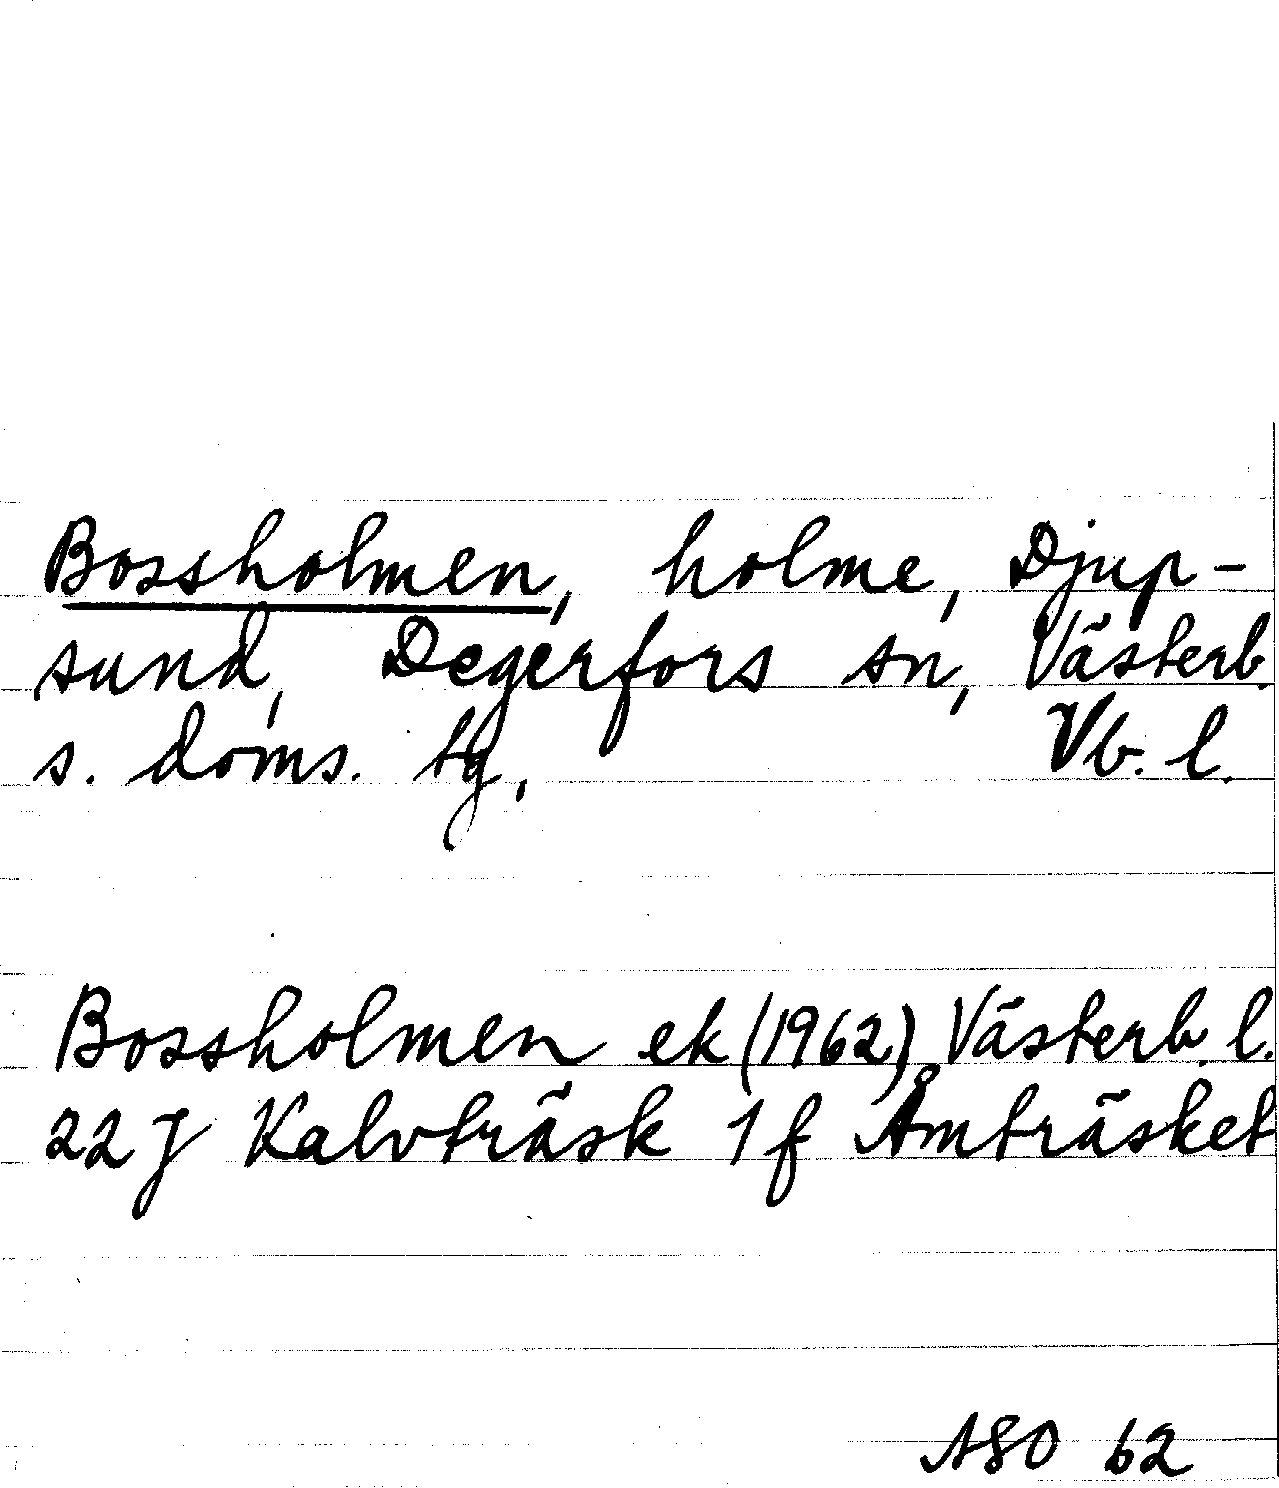 Bossholmen, holme, Djup-
sund, Degerfors sn, Västerb.
s. doms. tg, Vb. l.
Bossholmen ek (1962) Västerb. l.
22 J Kalvträsk 1 f Åmträsket
ASO 62